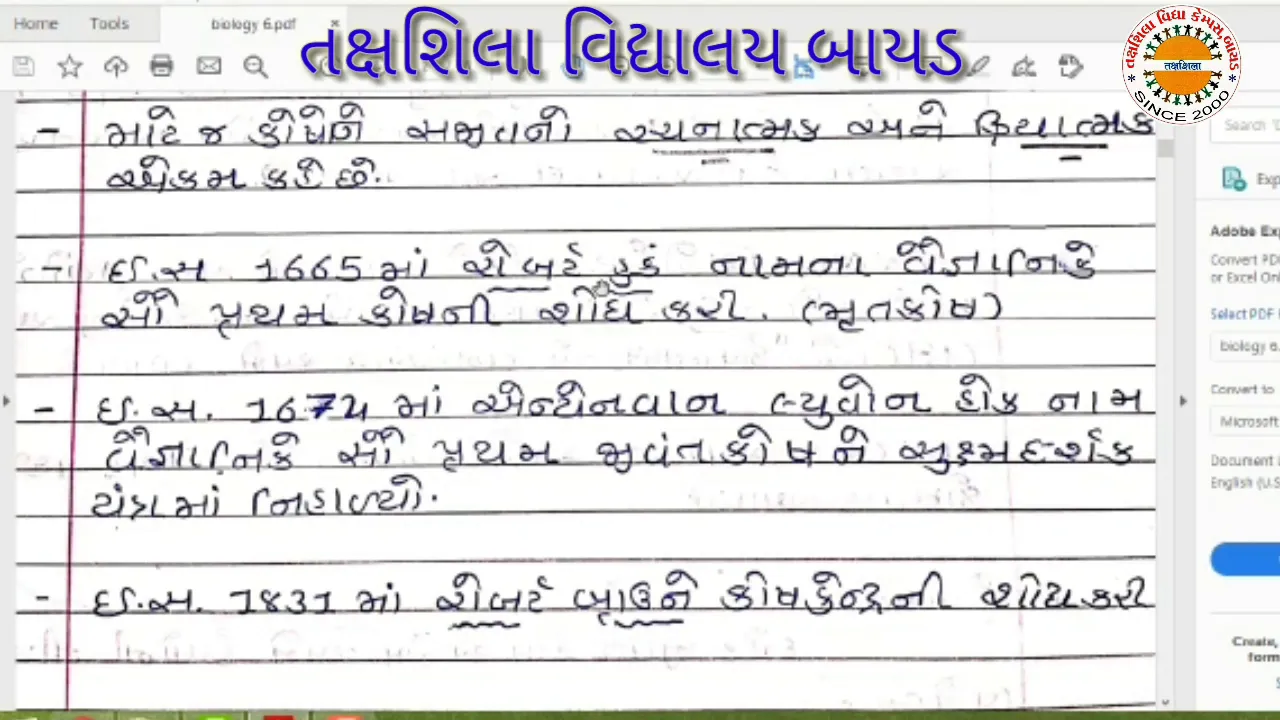 Home Tools biology 6.pdf ×
તક્ષશિલા વિદ્યાલય બાયડ
તક્ષશિલા વિદ્યા કેમ્પસ, બાયડ
તક્ષશિલા
SINCE 2000
- માટે જ કોષને સજીવનો રચનાત્મક અને ક્રિયાત્મક
એકમ કહે છે.
- ઈ.સ 1665માં રોબર્ટ હુક નામના વૈજ્ઞાનિકે
સૌ પ્રથમ કોષની શોધ કરી. (મૃતકોષ)
- ઈ.સ. 1674 માં એન્ટોનવાન લ્યુવોન હોક નામ
વૈજ્ઞાનિકે સૌ પ્રથમ જીવંતકોષને સુક્ષ્મદર્શક
યંત્રમાં નિહાળ્યો.
- ઈ.સ. 1831માં રોબર્ટ બ્રાઉને કોષકેન્દ્રની શોધ કરી
Search
Exp
Adobe Exp
Convert PD
or Excel On
Select PDF F
biology 6.
Convert to
Microsoft
Document L
English (U.S
Create,
form